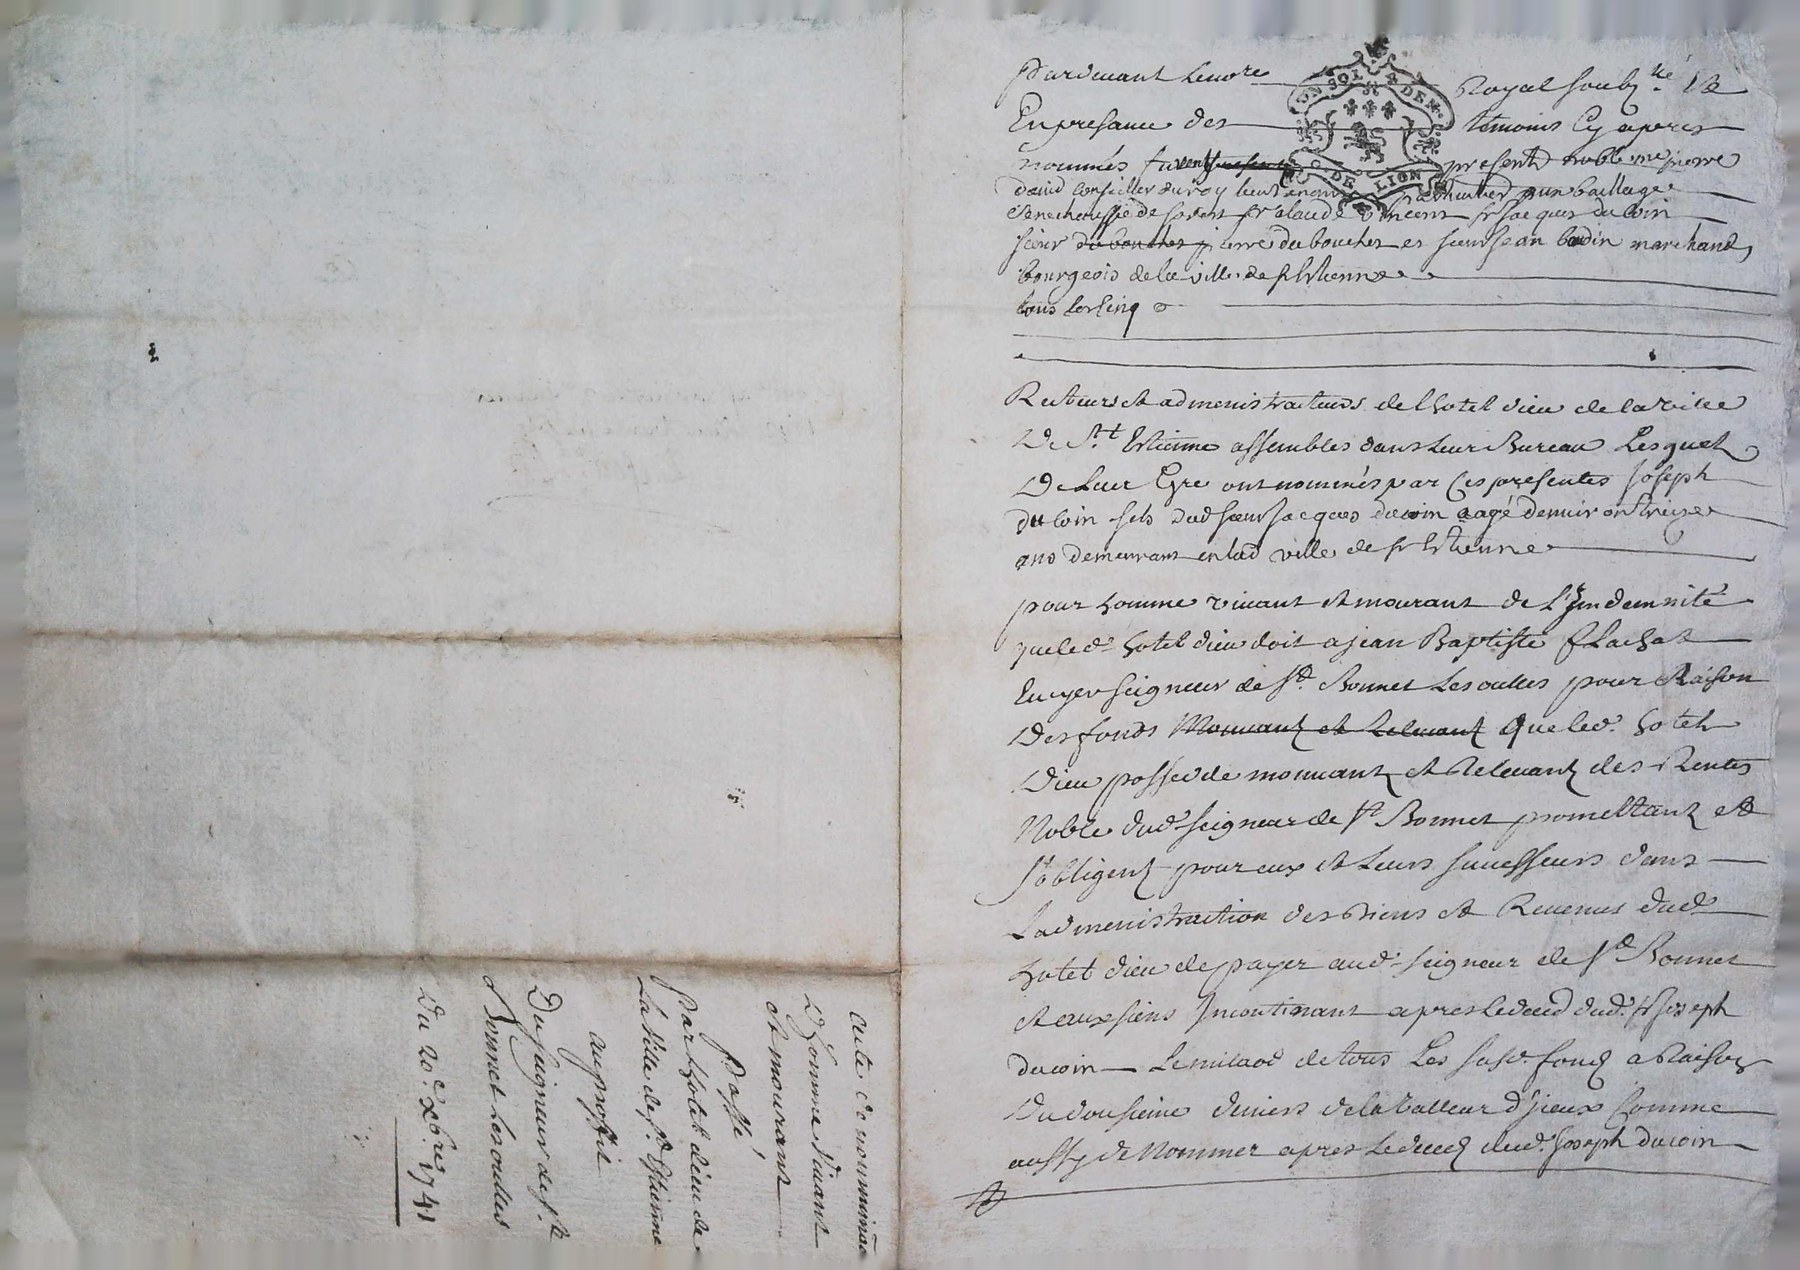 Pardeuant Le no.re Royal soubz.né Et
En presance des temoins Cy apres
nommés furent presents noble me pierre
dauid Conseiller du roy lieut. au baillage
senechaussée de forest sr Claude Vincent sr Jacques ducoin
sieur du bouchet pierre du bouchet et sieur Jean bodin marchands
bourgeois de la ville de st Estienne
tous les cinq
Recteurs et admenistrateurs de l'hotel dieu de la ville
De St. Estienne assembles dans Leur Bureau Lesquels
De Leur Gré ont nommés par Ces presentes Joseph
du Coin fils dud sieur Jacques ducoin aagé d'enuiron treize
ans demeurant en lad ville de st Estienne
pour homme viuant et mourant de L'Jndemnité
que led. hotel dieu doit a jean Baptiste fLachat
Ecuyer seigneur de St. Bonnet Les oulles pour Raison
Des fonds Mouuants et Releuants Que led. hotel
Dieu possede mouuants et Releuants des Rentes
Noble dud. seigneur de St Bonnet promettants et
s'obligents pour eux et Leurs successeurs dans
L'admenistration des Biens et Reuenus dud.
hotel dieu de payer aud. seigneur de St Bonnet
et aux siens Jncontinant apres le deced dud. sr Joseph
ducoin Le milaod de tous Les susd. fonds a Raison
Du dousieme deniers de la Valleur d'Jceux Comme
aussy de Nommer apres Le deced dud. Joseph ducoin
acte de nominaõn
D'homme Viuant
et mourant
Passé
Par Lhotel dieu de
La Ville de st. Estienne
au proffit
Du seigneur de st.
Bonnet Les oulles
Du 20.e Xbre 1741
UN SOL 4 DEN.
G. DE LION